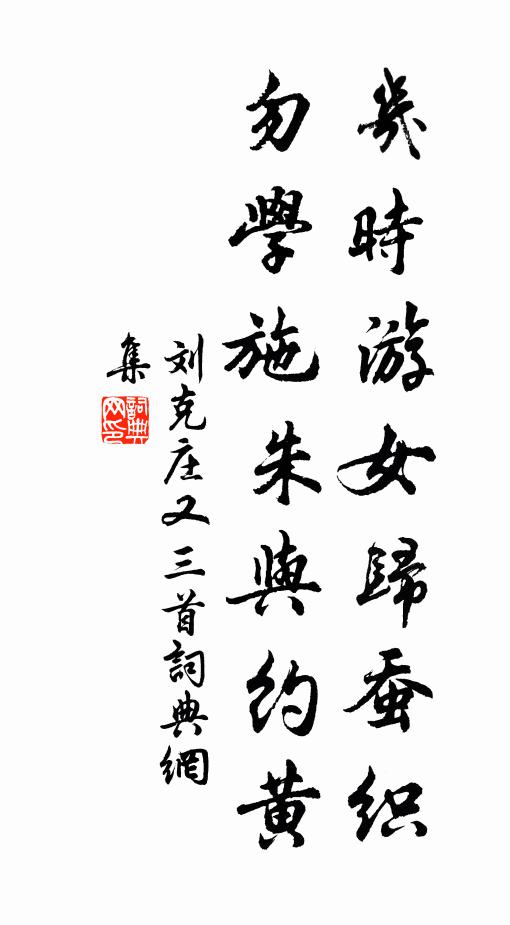 幾時游女歸蚕织
勿學施朱與約黄
刘克庄又三首詞典網
集
詞典网印